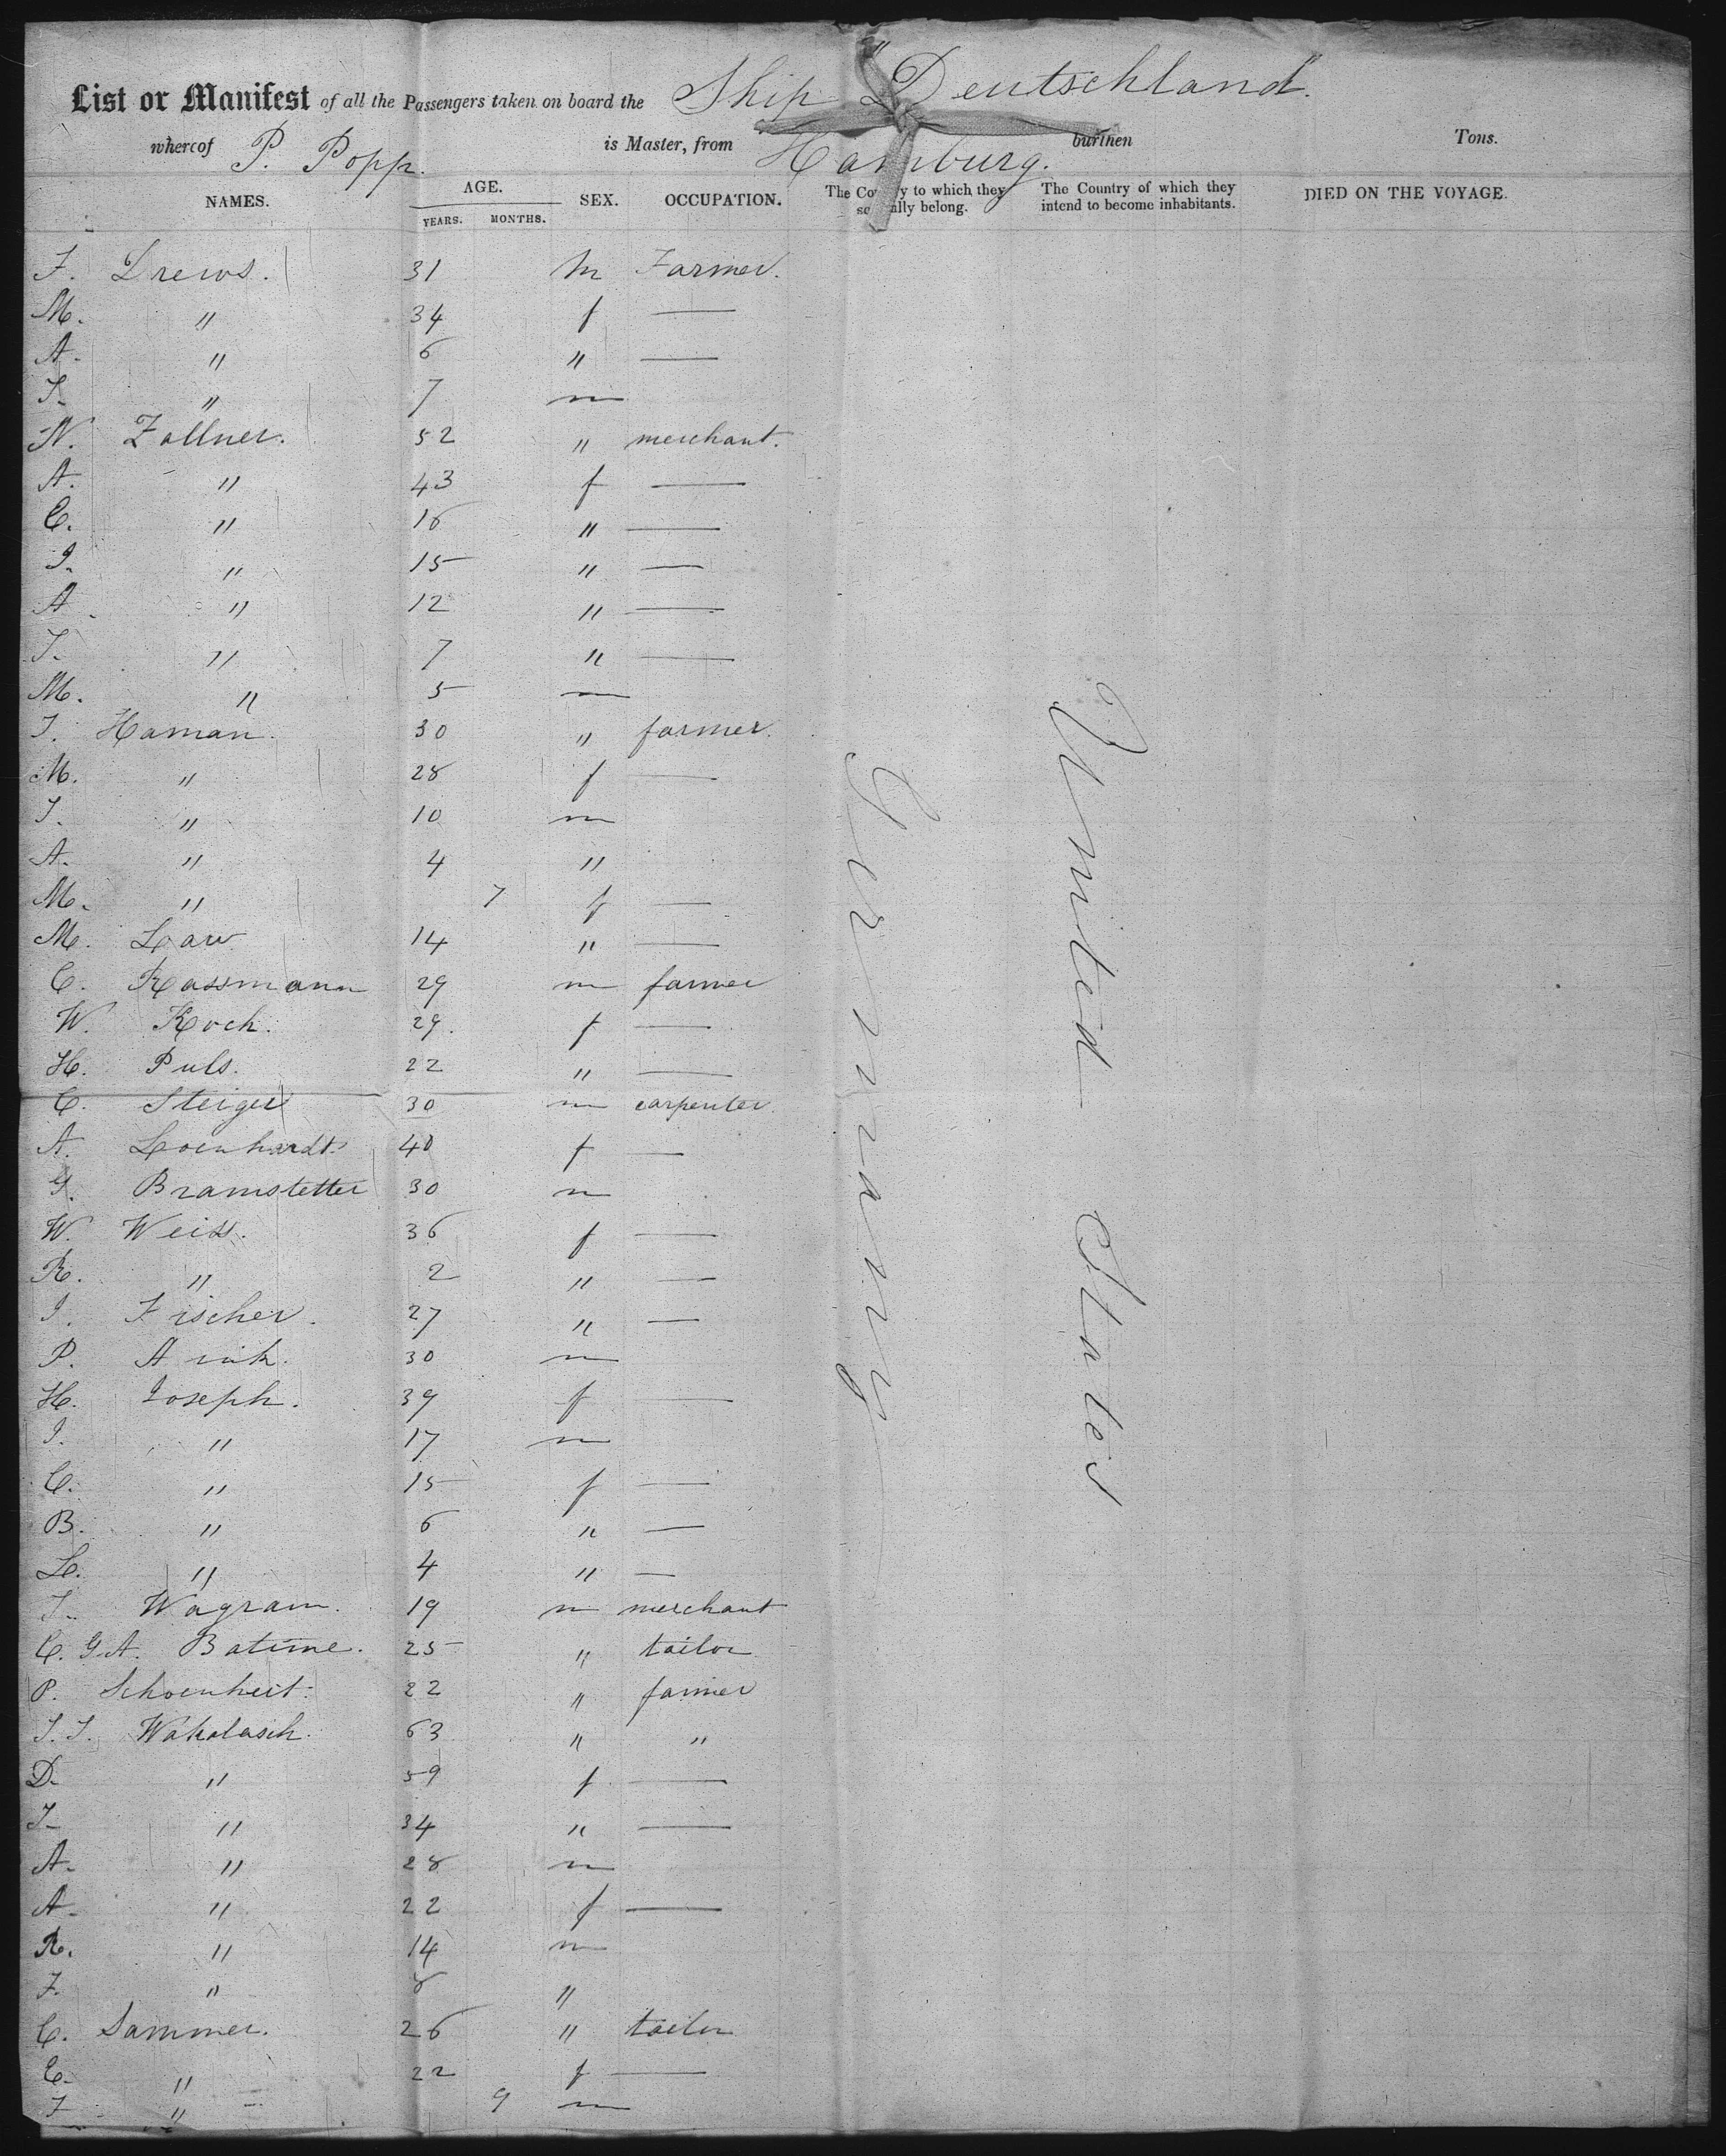 List or Manifest of all the Passengers taken on board the Ship "Deutschland"
whereof P. Popp. is Master, from Hamburg. burthen Tons.
NAMES. AGE. YEARS. MONTHS. SEX. OCCUPATION. The Country to which they severally belong. The Country of which they intend to become inhabitants. DIED ON THE VOYAGE.
F. Drews. 31 m Farmer.
M. " 34 f —
A. " 6 " —
J. " 7 m
N. Zollner. 52 " merchant.
A. " 43 f —
C. " 16 " —
I. " 15 " —
A " 12 " —
J. " 7 " —
M. " 5 m
J. Haman. 30 " farmer.
M. " 28 f —
J. " 10 m
A. " 4 "
M. " 7 f —
M. Law 14 " —
C. Rassmann 29 m farmer
W. Koch. 29. f —
H. Puls. 22 " —
C. Steiger 30 m carpenter.
A. Loenhardt. 40 f —
G. Bramstetter 30 m
W. Weiss. 36 f —
R. " 2 " —
I. Fischer. 27 " —
P. 30 m
H. Joseph. 39 f —
I. " 17 m
C. " 15 f —
B. " 6 " —
L. " 4 " —
J. Wagram. 19 m merchant
C. G. A. 25 " tailor
P. Schoenheit. 22 " farmer
J. J. Wakalasch. 63 " "
D. " 59 f —
J. " 34 " —
A. " 28 m
A. " 22 f —
R. " 14 m
F. " 8 "
C. Sammer. 26 " tailor
E. " 22 f —
F " 9 m
Germany
United States